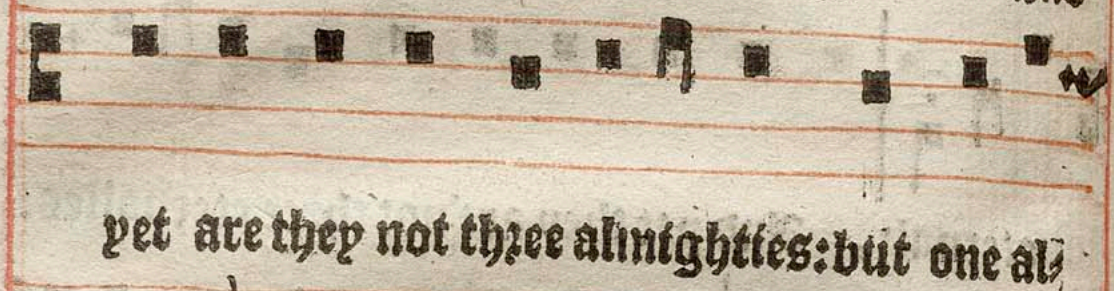 yet are they not three almighties: but one al⸗